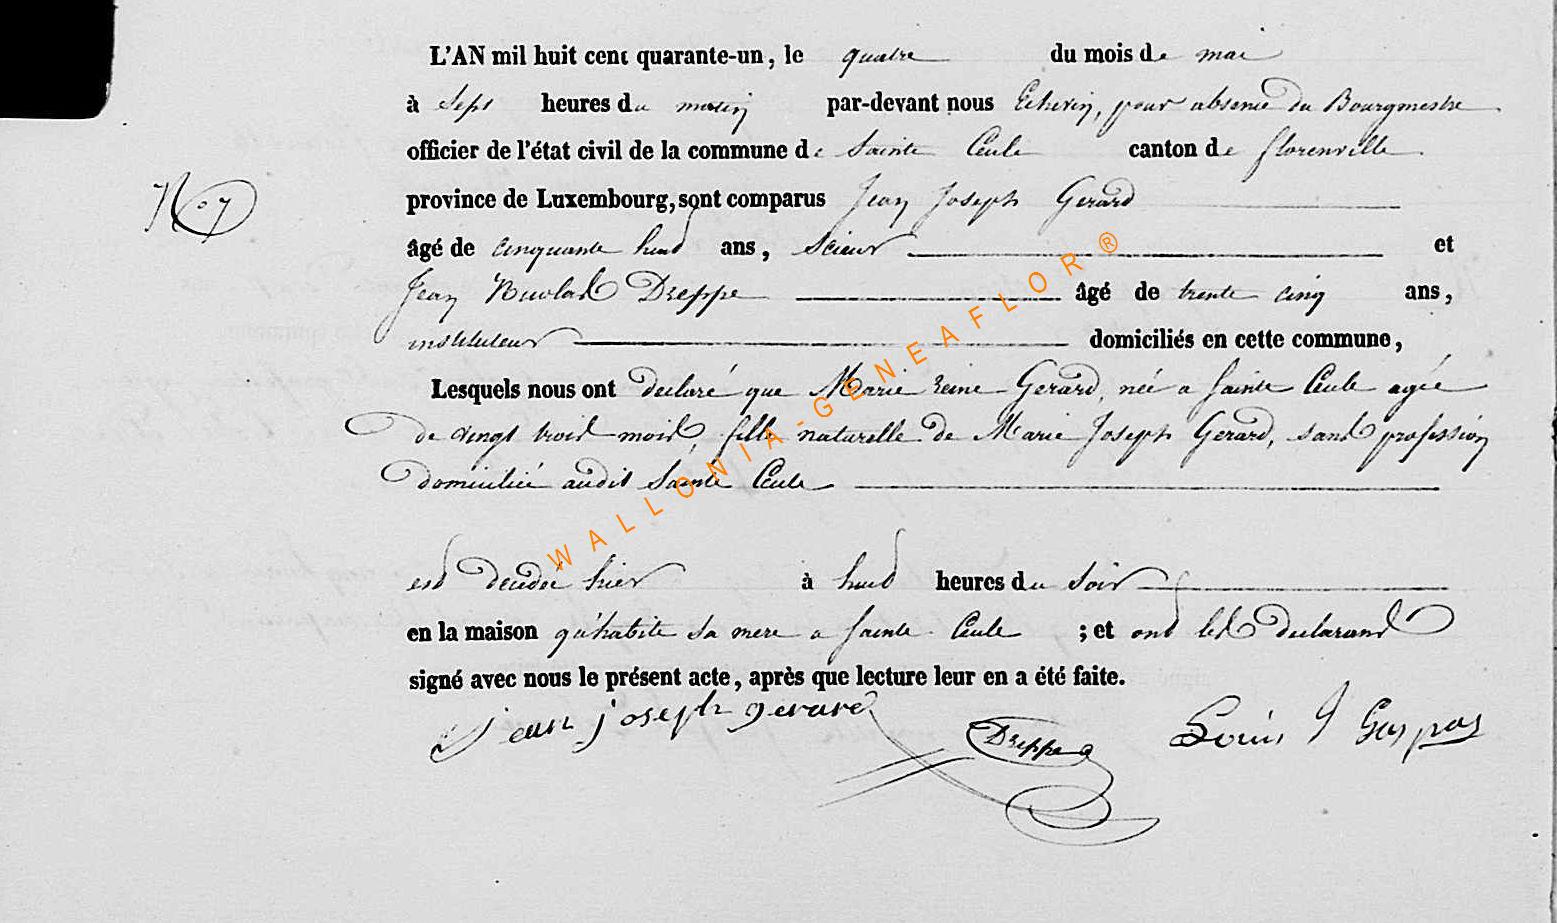 L'AN mil huit cent quarante-un, le quatre du mois de mai
à sept heures du matin par-devant nous Echevin, pour absence du Bourgmestre
officier de l'état civil de la commune de Sainte Cecile canton de florenville
N° 7
province de Luxembourg, sont comparus Jean Joseph Gerard
âgé de cinquante huit ans, Scieur et
Jean Nicolas Dreppe âgé de trente cinq ans,
instituteur domiciliés en cette commune,
Lesquels nous ont declaré que Marie reine Gerard, née a Sainte Cecile agée
de vingt trois mois, fille naturelle de Marie Joseph Gerard, sans profession
domiciliée audit Sainte Cecile
est decedée hier à huit heures du soir
en la maison qu'habite sa mere a Sainte Cecile ; et ont les declarans
signé avec nous le présent acte, après que lecture leur en a été faite.
jean joseph gerard Dreppe Louis J Gaspar
WALLONIA-GENEAFLOR®